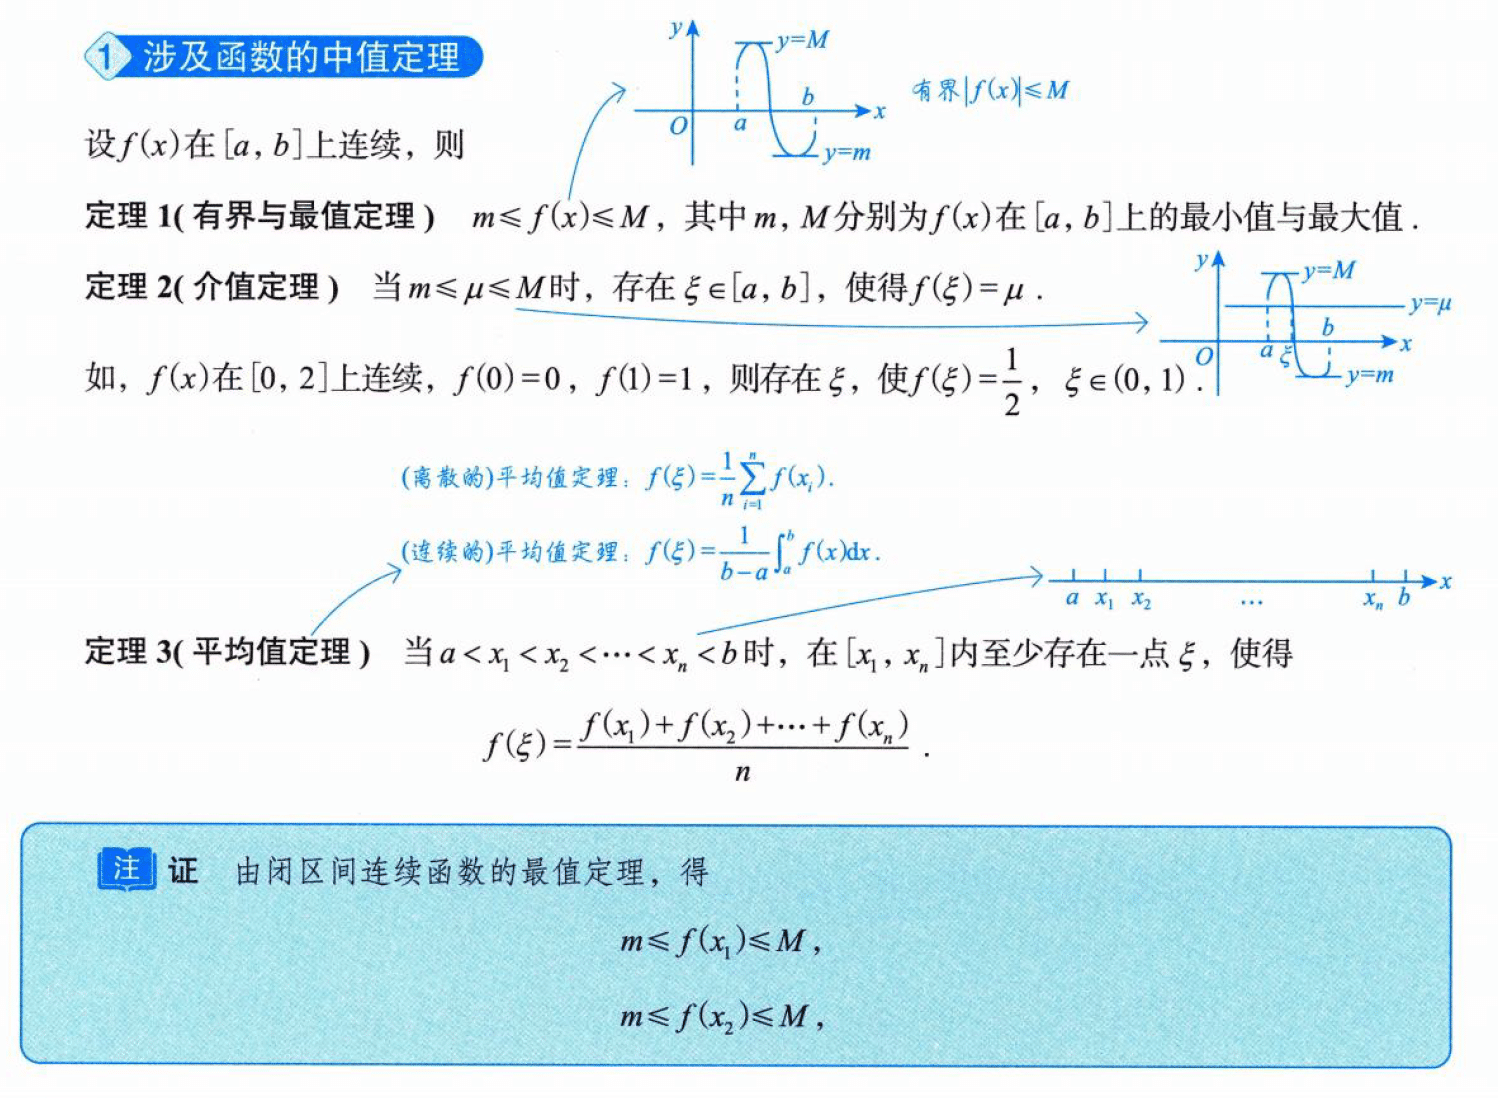 1 涉及函数的中值定理
y
y=M
b
x
O
a
y=m
有界|f(x)|≤M
设f(x)在[a, b]上连续，则
定理 1( 有界与最值定理 ) m≤f(x)≤M，其中m, M分别为f(x)在[a, b]上的最小值与最大值.
定理 2( 介值定理 ) 当m≤μ≤M时，存在ξ∈[a, b]，使得f(ξ)=μ.
y
y=M
y=μ
b
x
O
a ξ
y=m
如，f(x)在[0, 2]上连续，f(0)=0，f(1)=1，则存在ξ，使f(ξ)=1/2，ξ∈(0, 1).
(离散的)平均值定理：f(ξ)=\frac{1}{n}\sum_{i=1}^{n}f(x_i).
(连续的)平均值定理：f(ξ)=\frac{1}{b-a}\int_a^b f(x)dx.
x
a x₁ x₂ … xₙ b
定理 3( 平均值定理 ) 当a<x₁<x₂<⋯<xₙ<b时，在[x₁, xₙ]内至少存在一点ξ，使得
f(ξ)=\frac{f(x₁)+f(x₂)+⋯+f(xₙ)}{n}.
注 证 由闭区间连续函数的最值定理，得
m≤f(x₁)≤M，
m≤f(x₂)≤M，